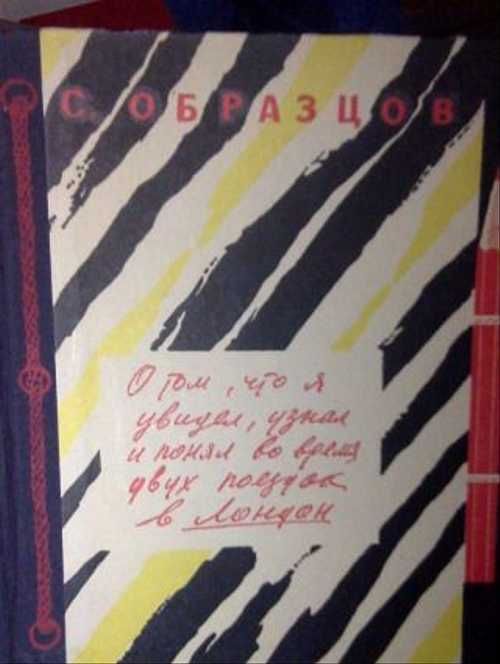 С. ОБРАЗЦОВ
О том, что я
увидел, узнал
и понял во время
двух поездок
в Лондон